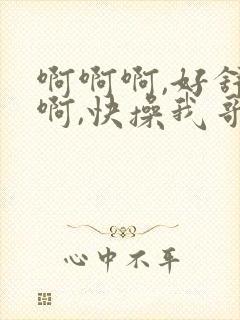 啊啊啊,好舒
啊,快操我哥
心中不平